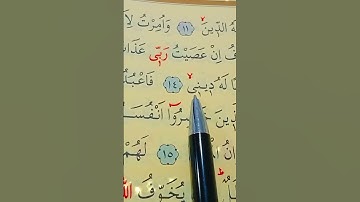 لَهُ الدّ۪ينَۙ ﴿١١﴾ وَاُمِرْتُ لِ
فُ اِنْ عَصَيْتُ رَبّ۪ي عَذَا
لَهُ د۪ين۪يۙ ﴿١٤﴾ فَاعْبُدُ
اَنْفُسَ
﴿١٥﴾ لَهُمْ
يُخَوِّفُ اللّٰ